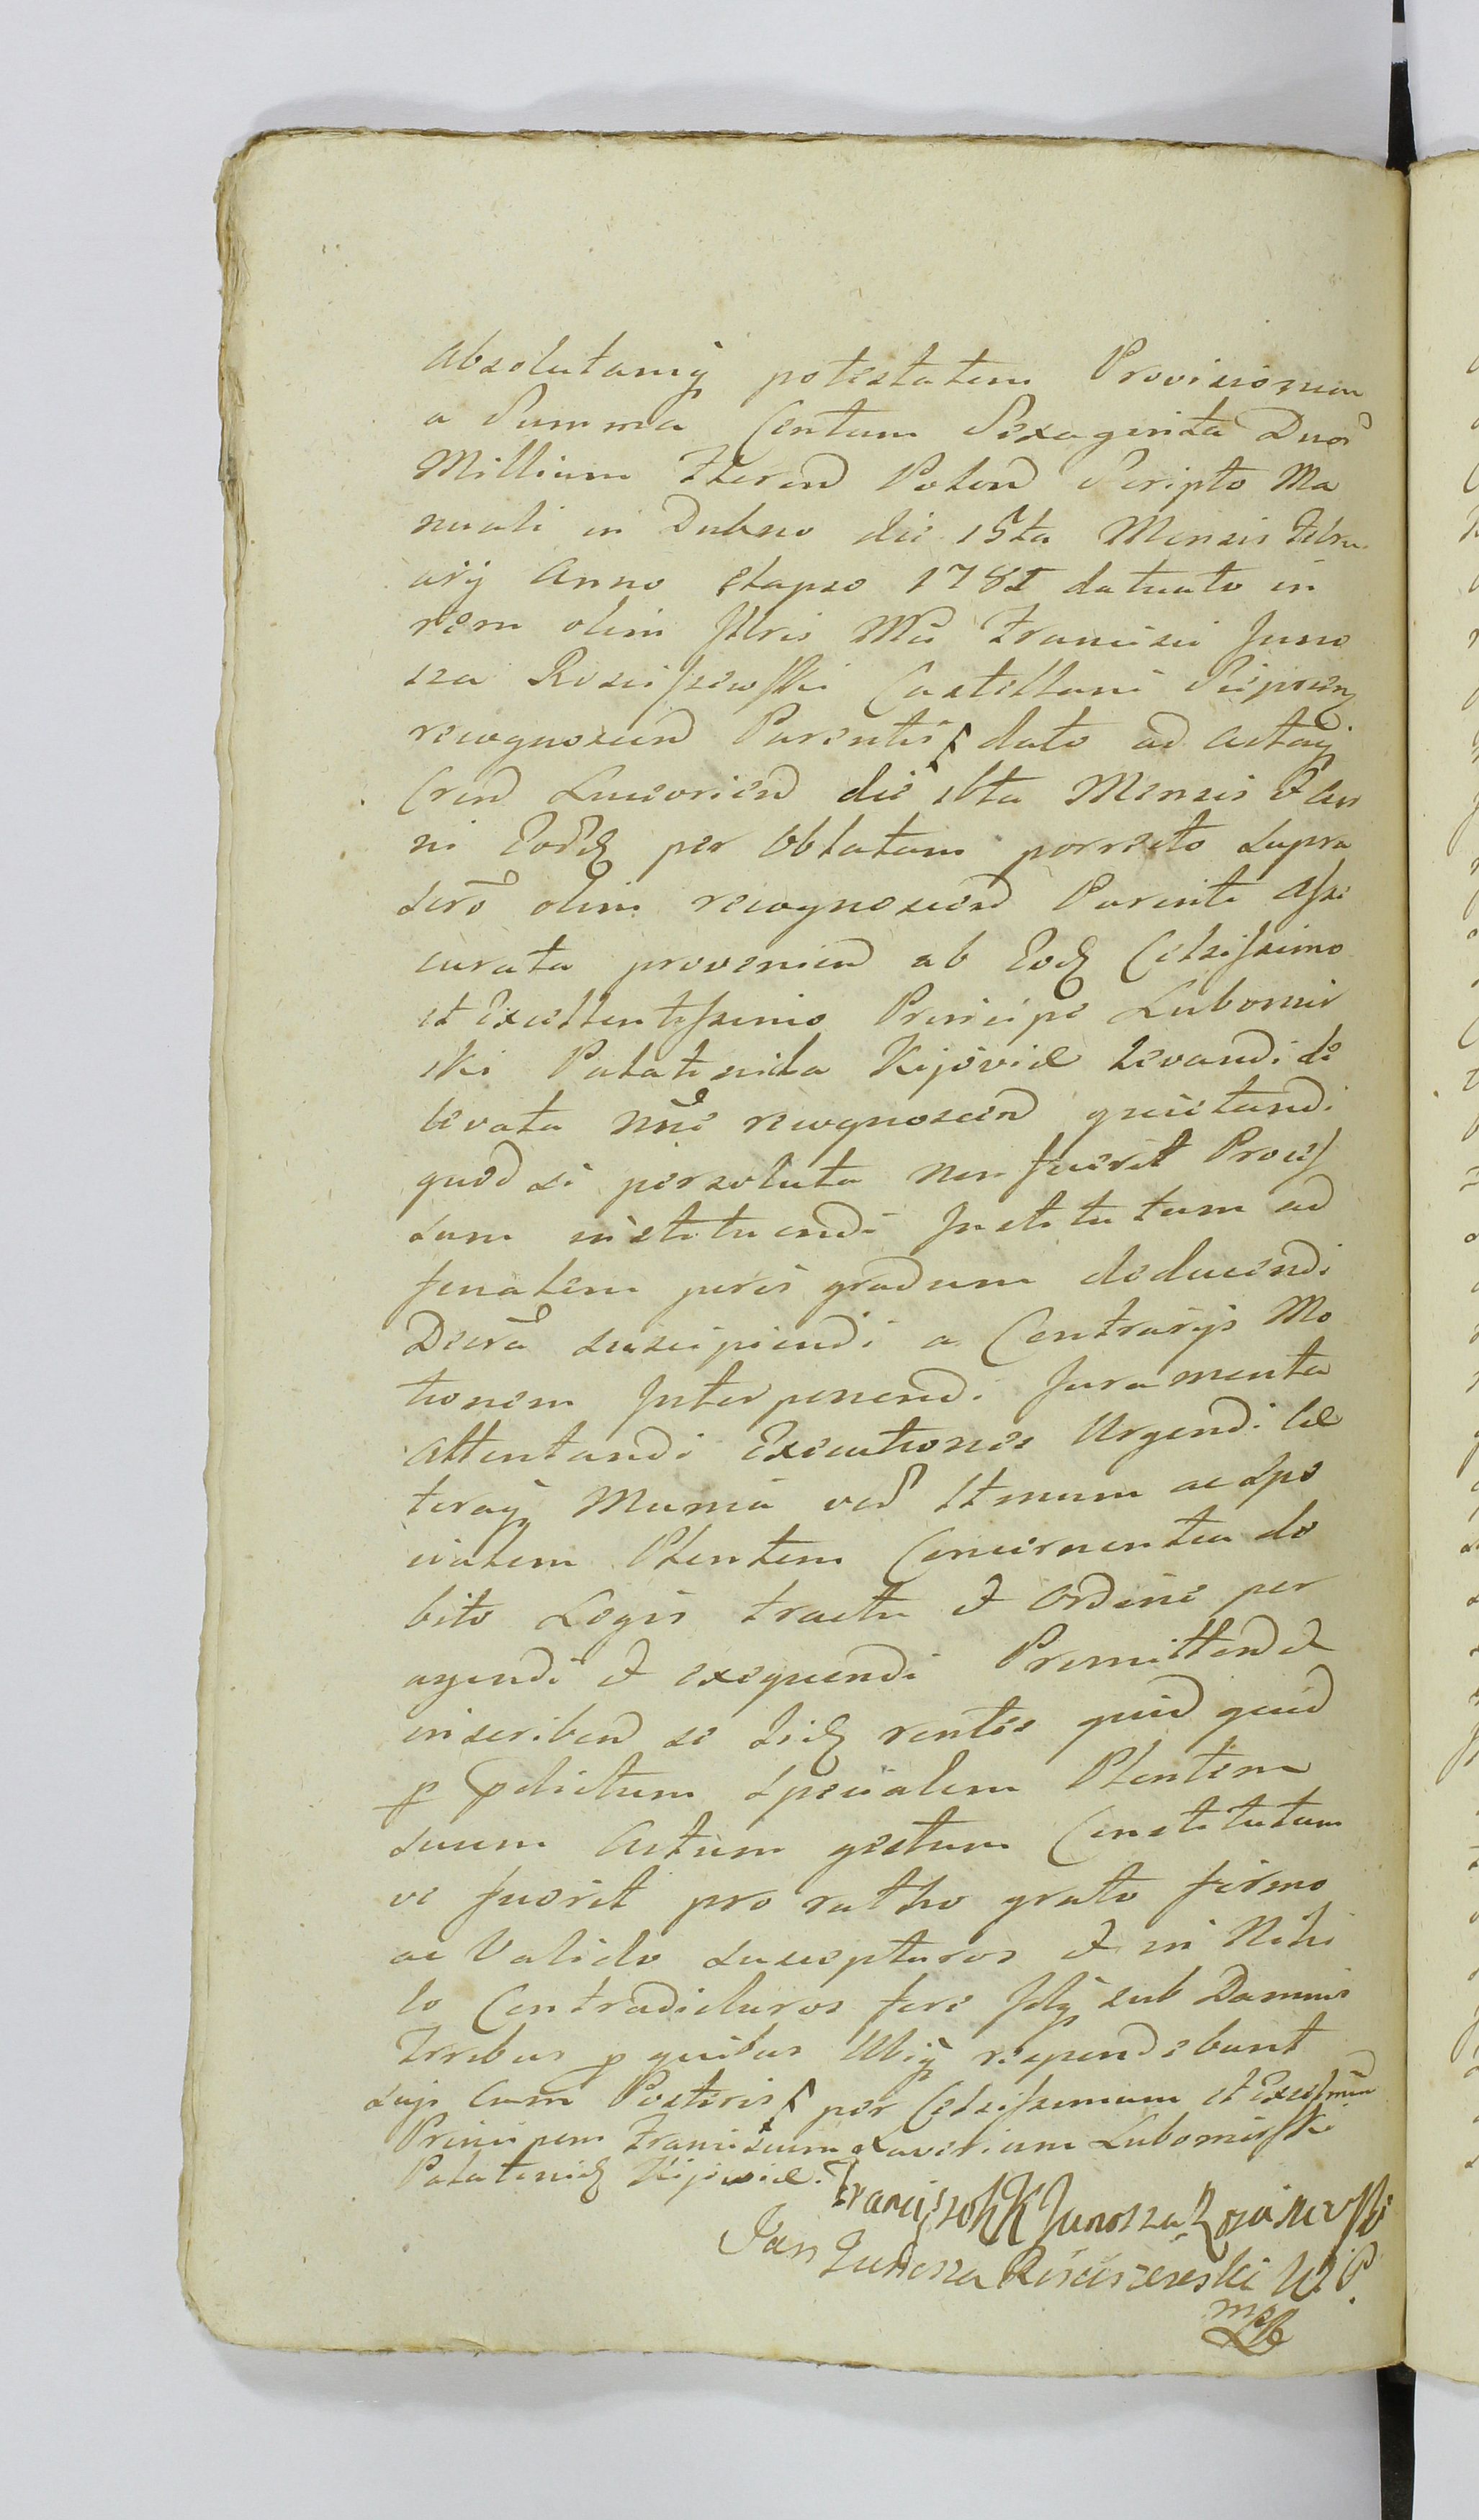 absolutamq potestatem Provisionem
a Summa Centum Sexaginta Duor
Millium Fleren Polon Scripto Ma
nuali in Dubno die 15ta Mensis Febru
arij Anno elapso 1781 datuato in
rem olim Illris Mci Francisci Juno
sza Rosciszewski Castellani
recognoscen Parentis dato ad actaq
Cren Luceorien die 16ta Mensis et An
ni Eord per Oblatam porrecto supra
scro olim recognoscen Parenti Asse
curata provenien ab Eod Celsissimo
et Excellentissimo Principe Lubomir
ski Palatinida Kijoviæ levandi de
levata nne recognoscen quietandi
quod si persoluta non fuerit Proces
sum instituendi Institutum ad
finalem juris gradum deducendi
Decra suscipiendi a Contrarijs Mo
tionem Interponendi Juramenta
Attentandi Executiones Urgendi Cæ
teraq Munia ved ac Spe
cialem Plentem Concernentia de
bito Legis tractu et ordine per
agendi et exequendi Promitten et
inscriben se rentes quid quid
p pdictum specialem Plentem
suum Actum gestum Constitutum
ve fuerit pro ratho grato firmo
ac Valido suscepturos et in Nihi
lo Contradicturos fore Idq sub Damnis
Trribus p quibus Ubiq respondebunt
suis cum Posteris per Celsissimum et
Principem Franciscum Xaverium Lubomirski
Palatinid Kijoviæ.
Franciszek K Junosza Rosciszewski
Jan Junosza Rościszewski W. P.
mp